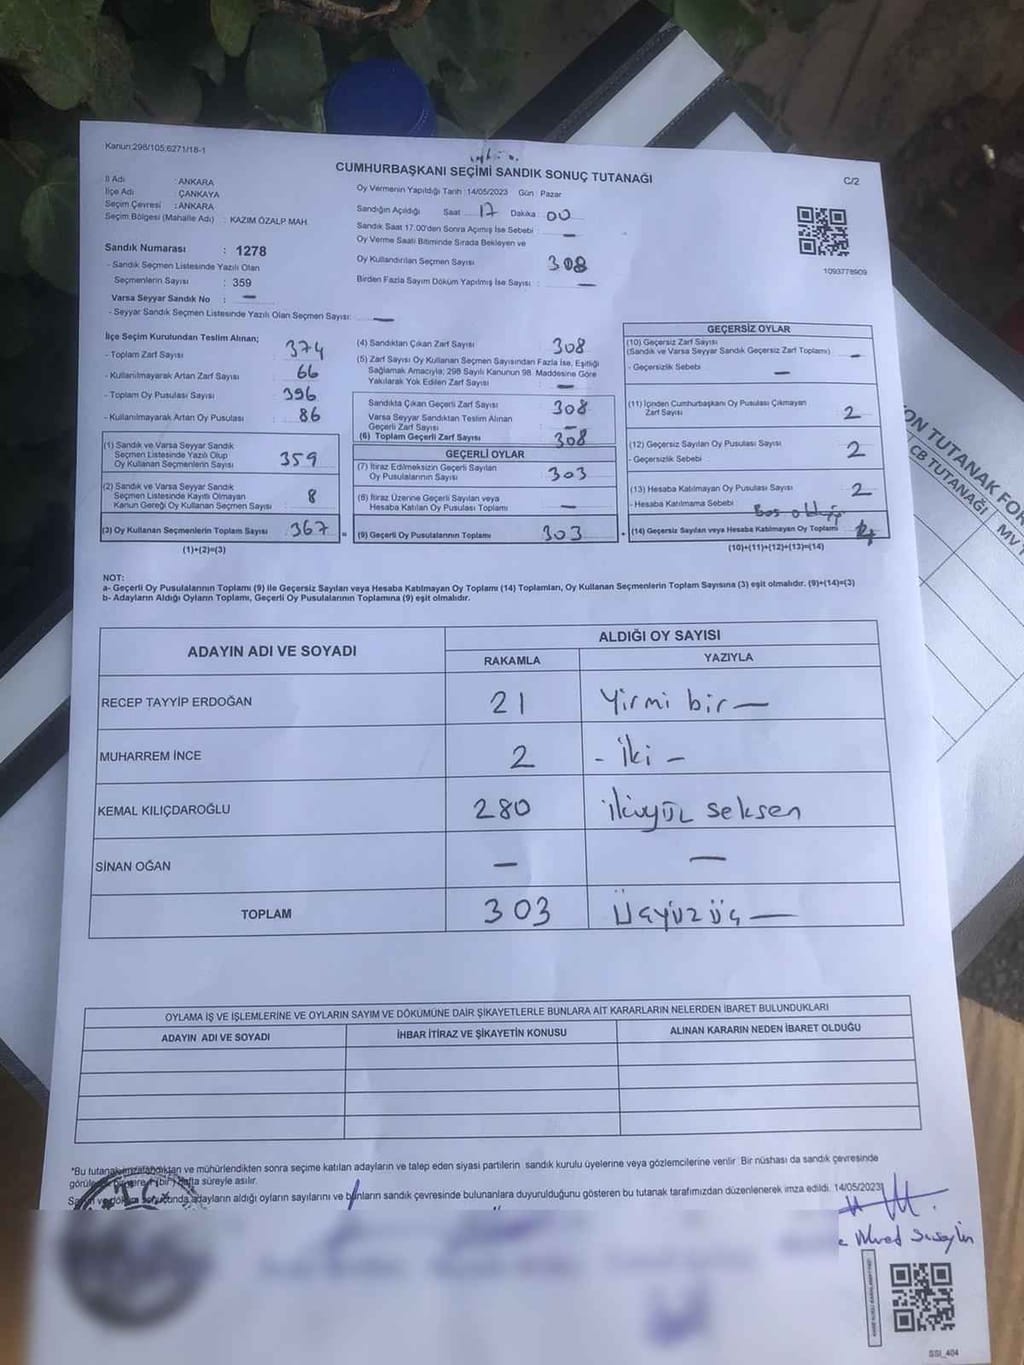 Kanun:298/105;6271/18-1
CUMHURBAŞKANI SEÇİMİ SANDIK SONUÇ TUTANAĞI
C/2
İl Adı : ANKARA
İlçe Adı : ÇANKAYA
Seçim Çevresi : ANKARA
Seçim Bölgesi (Mahalle Adı) : KAZIM ÖZALP MAH.
Sandık Numarası : 1278
- Sandık Seçmen Listesinde Yazılı Olan
Seçmenlerin Sayısı : 359
Varsa Seyyar Sandık No : —
- Seyyar Sandık Seçmen Listesinde Yazılı Olan Seçmen Sayısı: —
Oy Vermenin Yapıldığı Tarih :14/05/2023 Gün : Pazar
Sandığın Açıldığı Saat 17 Dakika : 00
Sandık Saat 17.00'den Sonra Açılmış İse Sebebi : —
Oy Verme Saati Bitiminde Sırada Bekleyen ve
Oy Kullandırılan Seçmen Sayısı : 308
Birden Fazla Sayım Döküm Yapılmış İse Sayısı : —
1093778909
İlçe Seçim Kurulundan Teslim Alınan;
- Toplam Zarf Sayısı : 374
- Kullanılmayarak Artan Zarf Sayısı : 66
- Toplam Oy Pusulası Sayısı : 396
- Kullanılmayarak Artan Oy Pusulası : 86
(1) Sandık ve Varsa Seyyar Sandık
Seçmen Listesinde Yazılı Olup
Oy Kullanan Seçmenlerin Sayısı : 359
(2) Sandık ve Varsa Seyyar Sandık
Seçmen Listesinde Kayıtlı Olmayan
Kanun Gereği Oy Kullanan Seçmen Sayısı : 8
(3) Oy Kullanan Seçmenlerin Toplam Sayısı : 367
(1)+(2)=(3)
(4) Sandıktan Çıkan Zarf Sayısı : 308
(5) Zarf Sayısı Oy Kullanan Seçmen Sayısından Fazla İse, Eşitliği
Sağlamak Amacıyla; 298 Sayılı Kanunun 98. Maddesine Göre
Yakılarak Yok Edilen Zarf Sayısı : —
Sandıkta Çıkan Geçerli Zarf Sayısı : 308
Varsa Seyyar Sandıktan Teslim Alınan
Geçerli Zarf Sayısı : —
(6) Toplam Geçerli Zarf Sayısı : 308
GEÇERLİ OYLAR
(7) İtiraz Edilmeksizin Geçerli Sayılan
Oy Pusulalarının Sayısı : 303
(8) İtiraz Üzerine Geçerli Sayılan veya
Hesaba Katılan Oy Pusulası Toplamı : —
= (9) Geçerli Oy Pusulalarının Toplamı : 303
GEÇERSİZ OYLAR
(10) Geçersiz Zarf Sayısı
(Sandık ve Varsa Seyyar Sandık Geçersiz Zarf Toplamı) : —
- Geçersizlik Sebebi : —
(11) İçinden Cumhurbaşkanı Oy Pusulası Çıkmayan
Zarf Sayısı : 2
(12) Geçersiz Sayılan Oy Pusulası Sayısı : 2
- Geçersizlik Sebebi :
(13) Hesaba Katılmayan Oy Pusulası Sayısı : 2
- Hesaba Katılmama Sebebi :
+ (14) Geçersiz Sayılan veya Hesaba Katılmayan Oy Toplamı :
(10)+(11)+(12)+(13)=(14)
NOT:
a- Geçerli Oy Pusulalarının Toplamı (9) ile Geçersiz Sayılan veya Hesaba Katılmayan Oy Toplamı (14) Toplamları, Oy Kullanan Seçmenlerin Toplam Sayısına (3) eşit olmalıdır. (9)+(14)=(3)
b- Adayların Aldığı Oyların Toplamı, Geçerli Oy Pusulalarının Toplamına (9) eşit olmalıdır.
ADAYIN ADI VE SOYADI
ALDIĞI OY SAYISI
RAKAMLA YAZIYLA
RECEP TAYYİP ERDOĞAN 21 Yirmi bir —
MUHARREM İNCE 2 - İki -
KEMAL KILIÇDAROĞLU 280 İkiyüz seksen
SİNAN OĞAN — —
TOPLAM 303 Üçyüz üç —
OYLAMA İŞ VE İŞLEMLERİNE VE OYLARIN SAYIM VE DÖKÜMÜNE DAİR ŞİKAYETLERLE BUNLARA AİT KARARLARIN NELERDEN İBARET BULUNDUKLARI
ADAYIN ADI VE SOYADI İHBAR İTİRAZ VE ŞİKAYETİN KONUSU ALINAN KARARIN NEDEN İBARET OLDUĞU
*Bu tutanak imzalandıktan ve mühürlendikten sonra seçime katılan adayların ve talep eden siyasi partilerin sandık kurulu üyelerine veya gözlemcilerine verilir. Bir nüshası da sandık çevresinde
(bir) hafta süreyle asılır.
Sayım ve döküm sonucunda adayların aldığı oyların sayılarını ve bunların sandık çevresinde bulunanlara duyurulduğunu gösteren bu tutanak tarafımızdan düzenlenerek imza edildi. 14/05/2023
T.C.
SSI_404
ON TUTANAK FOR
CB TUTANAĞI
MV T